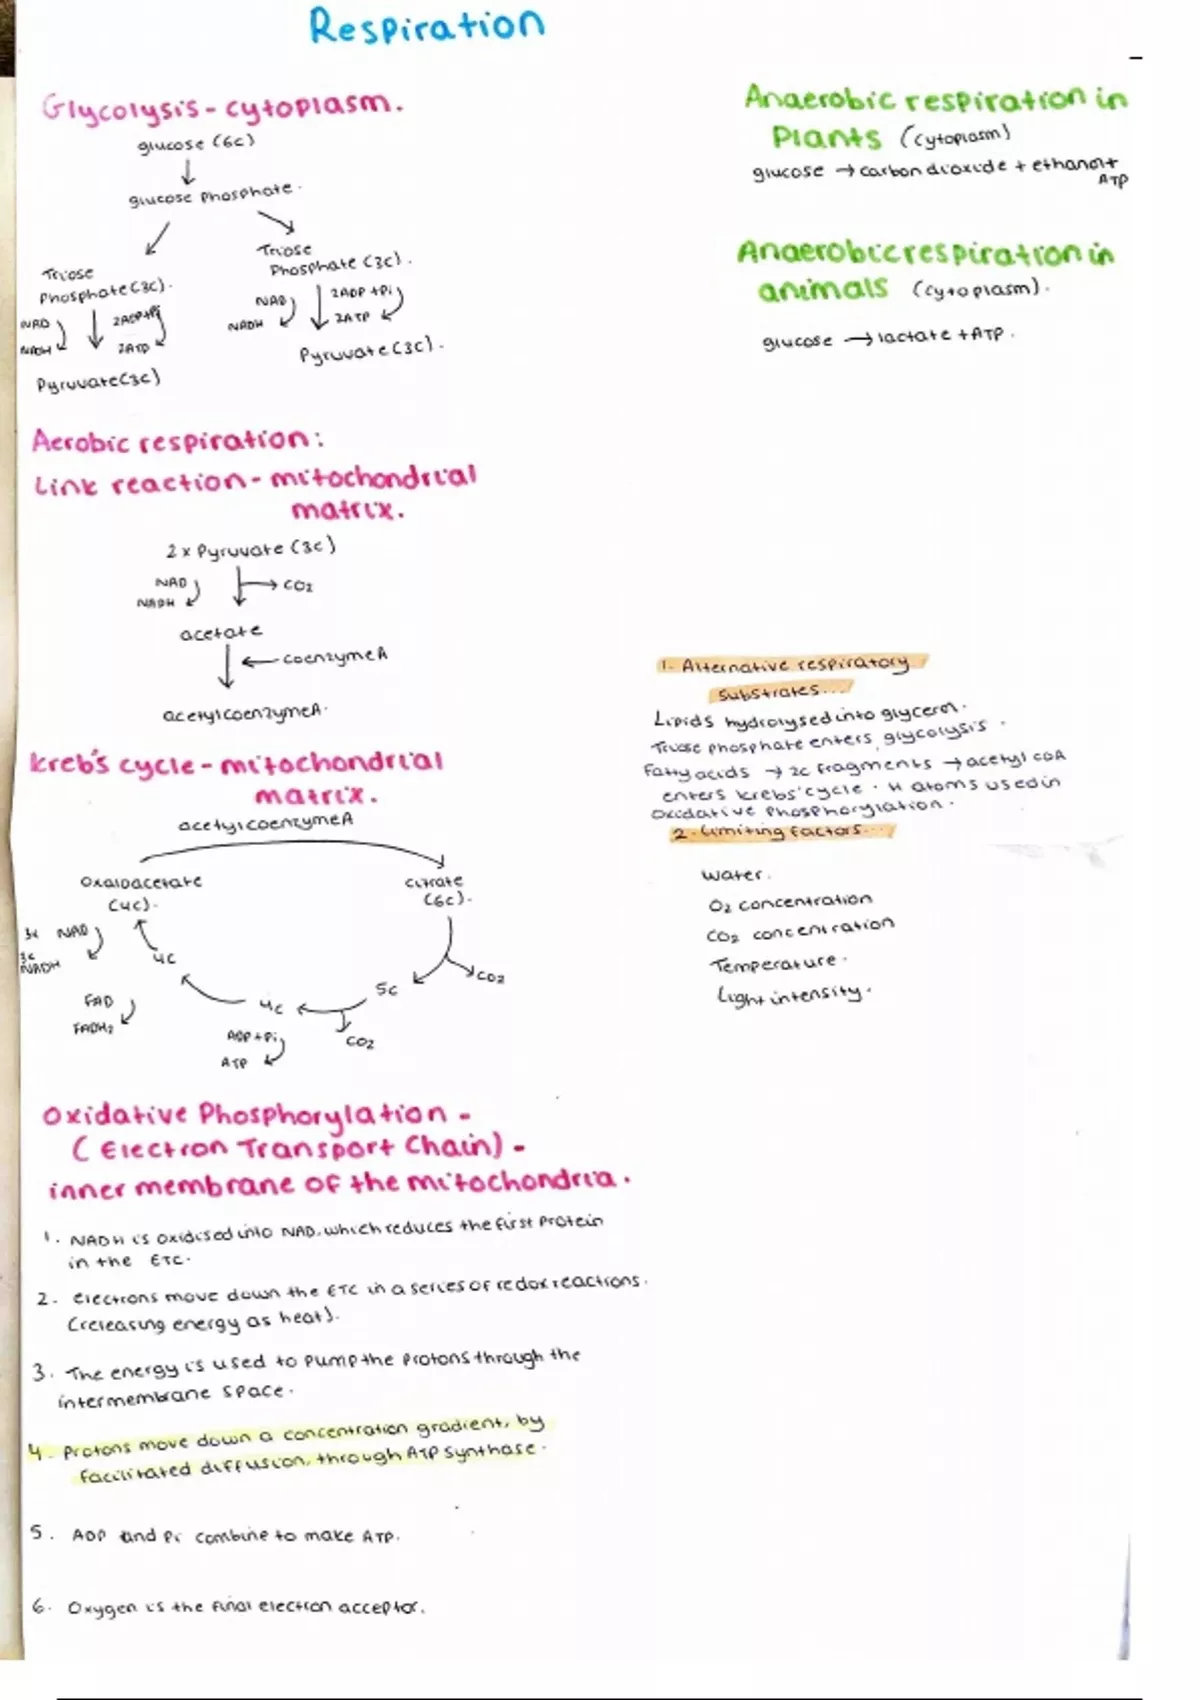 Respiration
Glycolysis - cytoplasm.
glucose (6c)
glucose phosphate.
Triose
Phosphate (3c).
NAD
NADH
2ADP+Pi
2ATP
Pyruvate (3c)
Triose
Phosphate (3c).
NAD
NADH
2ADP+Pi
2ATP
Pyruvate (3c).
Aerobic respiration:
Link reaction - mitochondrial
matrix.
2 x Pyruvate (3c)
NAD
NADH
CO2
acetate
coenzyme A
acetylcoenzymeA.
Kreb's cycle - mitochondrial
matrix.
acetylcoenzymeA
Oxaloacetate
(4c).
citrate
(6c).
3x NAD
3x
NADH
4c
CO2
5c
FAD
FADH2
4c
ADP+Pi
ATP
CO2
Oxidative Phosphorylation -
(Electron Transport Chain) -
inner membrane of the mitochondria.
1. NADH is oxidised into NAD, which reduces the first protein
in the ETC.
2. electrons move down the ETC in a series of redox reactions.
(releasing energy as heat).
3. The energy is used to pump the protons through the
intermembrane space.
4. Protons move down a concentration gradient, by
facilitated diffusion, through ATP synthase.
5. ADP and Pi combine to make ATP.
6. Oxygen is the final electron acceptor.
Anaerobic respiration in
Plants (cytoplasm)
glucose → carbon dioxide + ethanol +
ATP
Anaerobic respiration in
animals (cytoplasm).
glucose → lactate + ATP.
1. Alternative respiratory
substrates...
Lipids hydrolysed into glycerol.
Triose phosphate enters glycolysis.
Fatty acids → 2c fragments → acetyl coA
enters krebs' cycle. H atoms used in
oxidative phosphorylation.
2. Limiting factors...
Water.
O2 concentration
CO2 concentration
Temperature.
Light intensity.